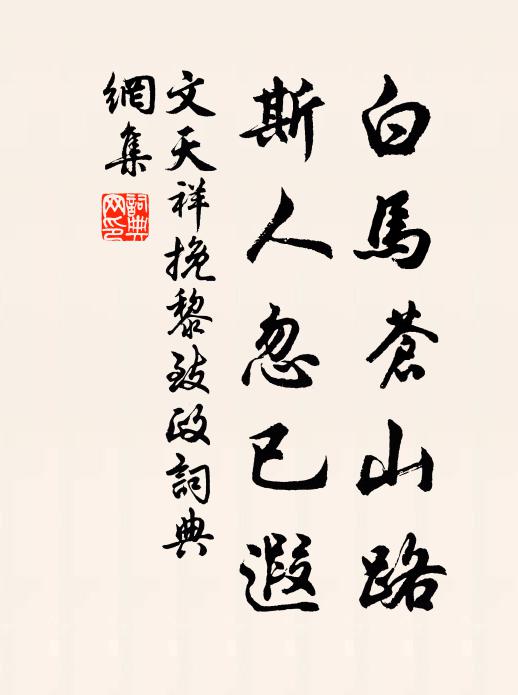 白馬蒼山路
斯人忽已遐
文天祥挽黎致政詞典
網集
詞典
网印